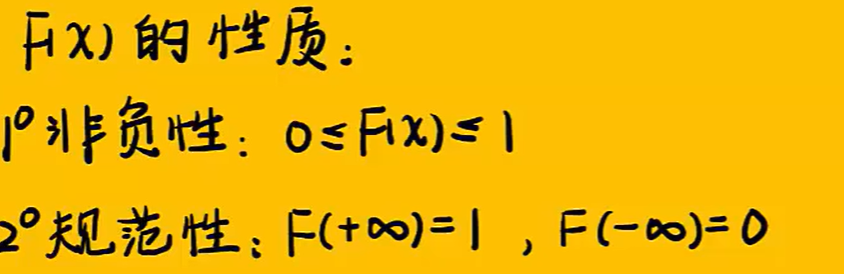 F(x)的性质：
1°非负性：0≤F(x)≤1
2°规范性：F(+∞)=1，F(-∞)=0